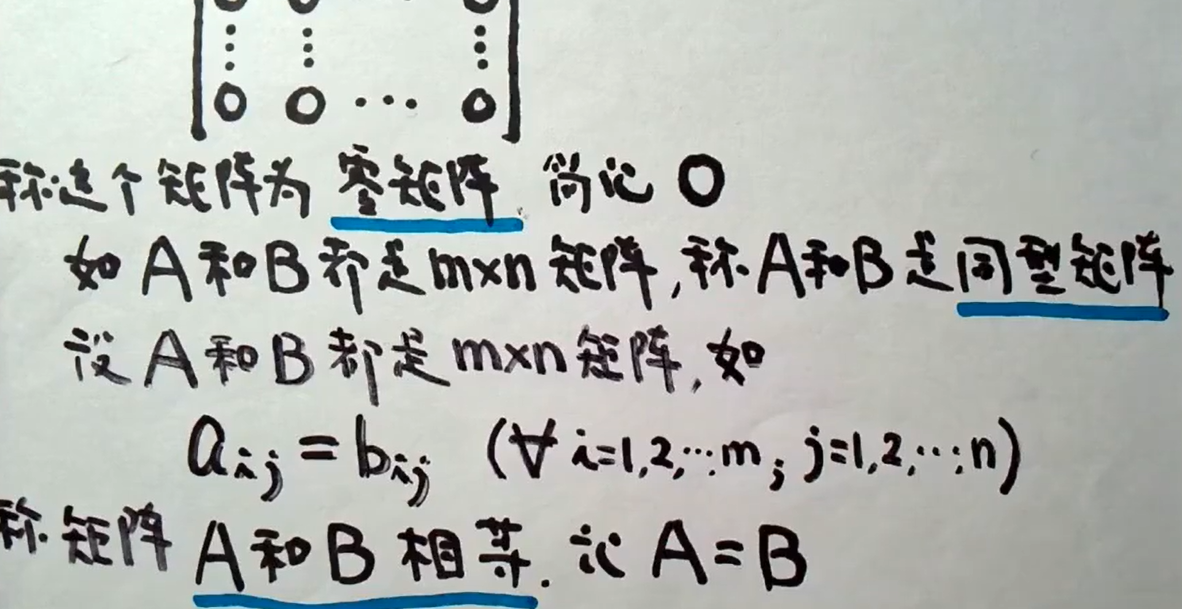 0 0 ⋯ 0
称这个矩阵为 零矩阵. 简记 O
如 A和B都是m×n矩阵,称A和B是同型矩阵
设 A和B都是m×n矩阵,如
aij = bij (∀ i=1,2,⋯m; j=1,2,⋯,n)
称矩阵 A和B相等. 记 A=B